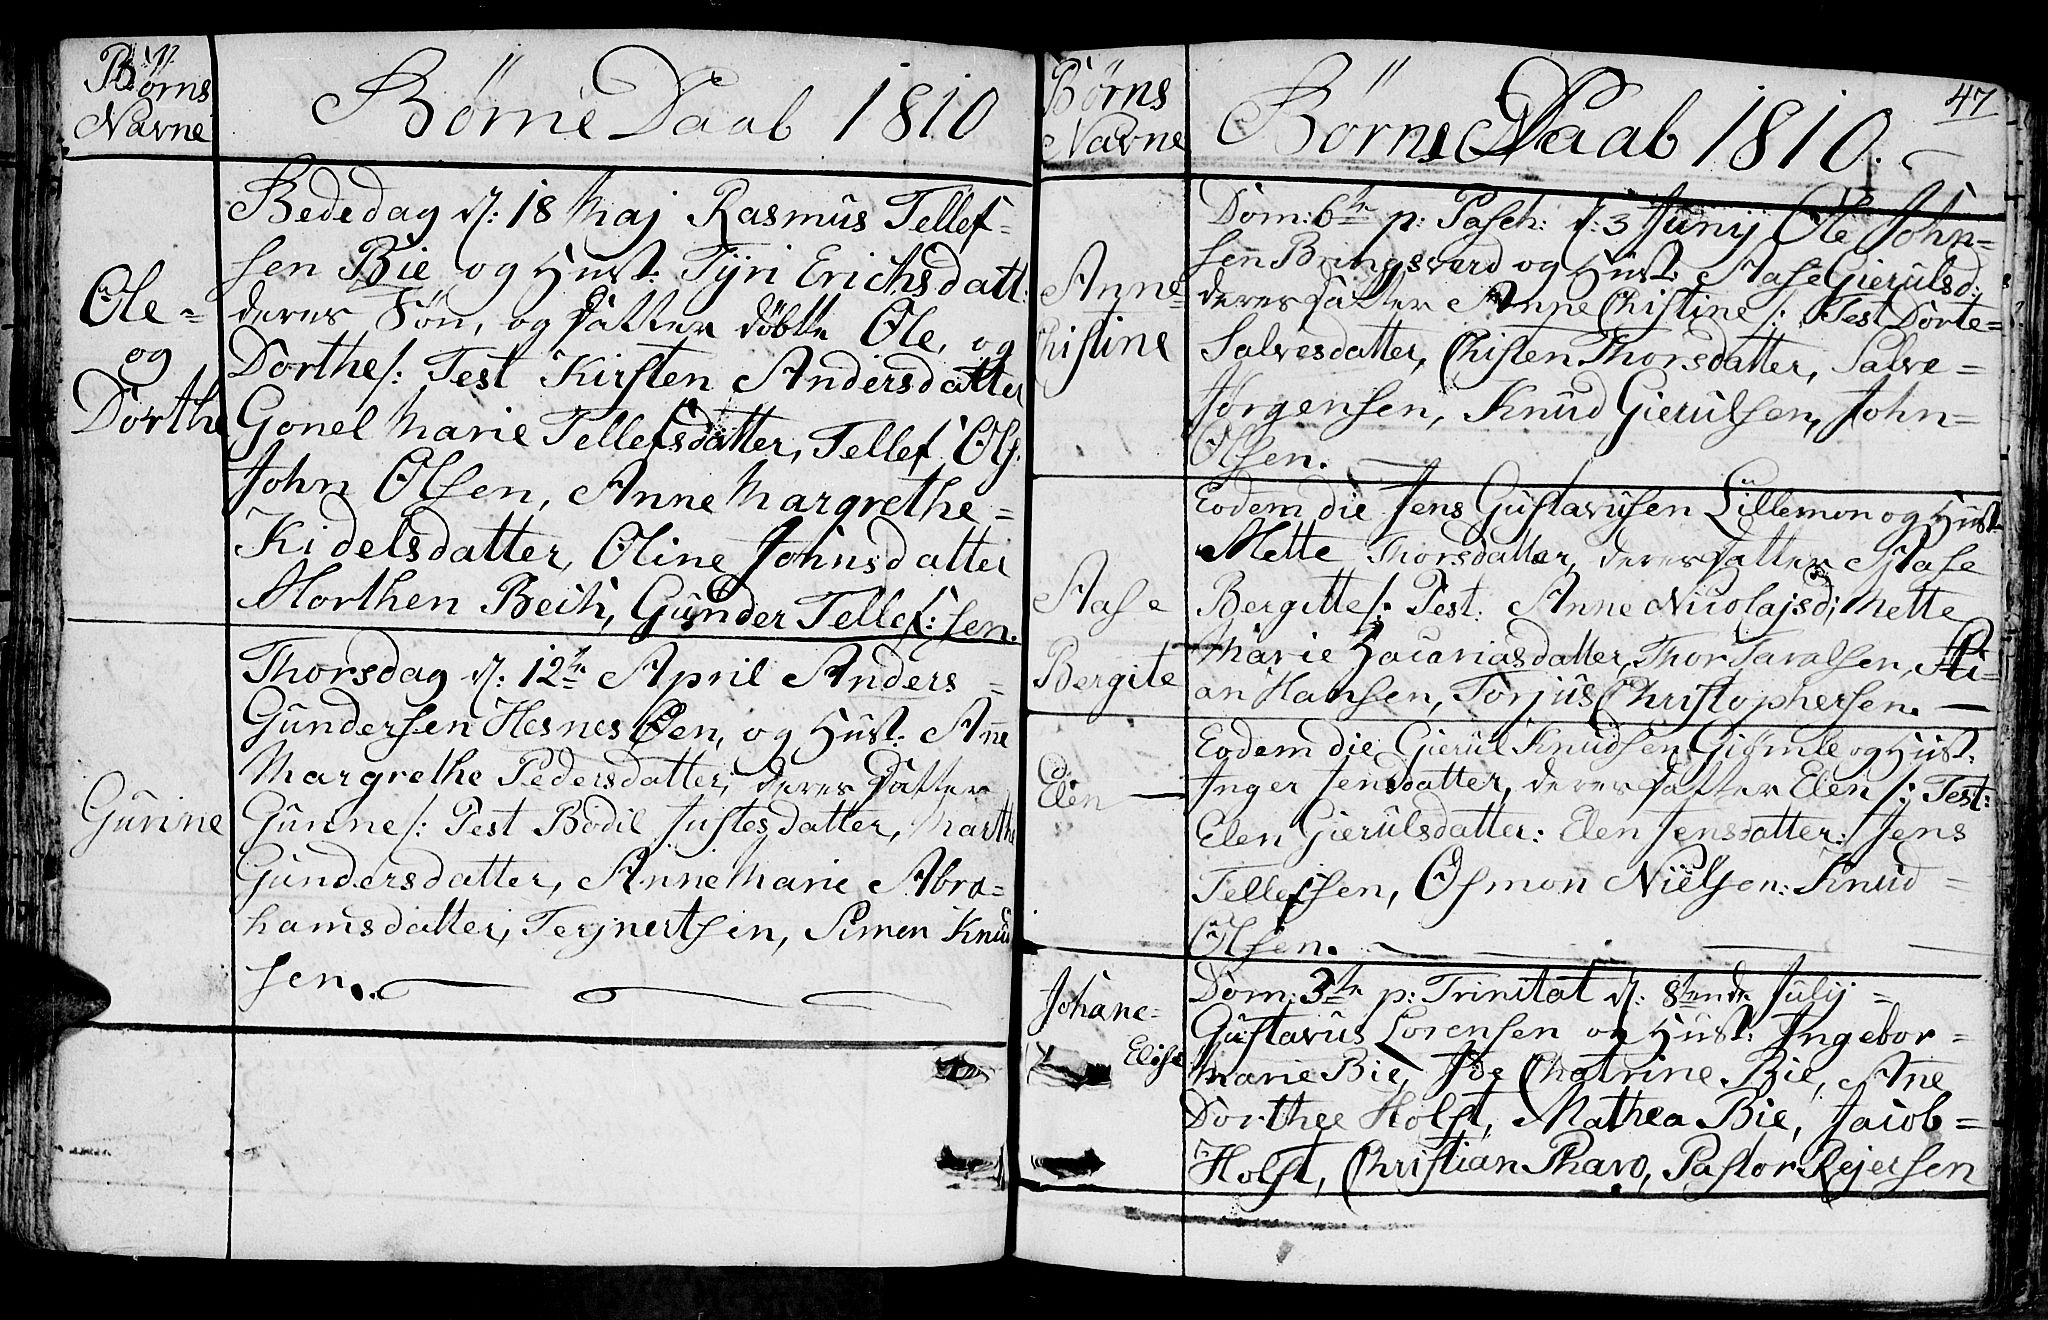 Børns
Navne
Børne Daab 1810
Ole=
og
Dorthe
Bededag d: 18 Maj Rasmus Tellef-
sen Bie og Hust: Tÿri Erichsdatt:
deres Søn, og datter døbte Ole, og
Dorthe/: Test Kirsten Andersdatter
Gonel Marie Tellefsdatter, Tellef Ols:
John Olsen, Anne Margrethe=
Kidelsdatter, Oline Johnsdatter
Morthen Beih, Gunder Tellef:sen.
Gurine
Thorsdag d: 12te April Anders=
Gundersen Hesnes Øen, og Hust: Anne
Margrethe Pedersdatter, deres datter
Gurine/: Test Bodil Justesdatter, Marthe
Gundersdatter, Anne Marie Abra=
hamsdatter, Terjnertsen, Simon Knud
sen.
47
Børns
Navne
Børne Daab 1810.
Anne=
Christine
Dom: 6te p: Pasch: d: 3 Junij Ole John=
sen Bringsverd og Hust: Aase Gierulsd:
deres datter Anne Christine/: Test Dorte=
Salvesdatter, Christen Thorsdatter, Salve=
Jørgensen, Knud Gierulsen, John=
Olsen.
Aase
Bergite
Eodem die Jens Gustavusen Lillemon og Hust
Mette Thorsdatter, deres datter Aase
Bergitte/: Test: Anne Nicolajsd; Mette
Marie Zacariasdatter, Thor Taralsen, Sti=
an Hansen, Torjus Christophersen.
Elen
Eodem die Gierul Knudsen Giømle og Hust:
Inger Jensdatter, deres datter Elen/: Test:
Elen Gierulsdatter: Elen Jensdatter: Jens
Tellefsen, Osmon Nielsen: Knud=
Olsen.
Johane=
Elise
Dom: 3te p: Trinitat d: 8tende Julij=
Gustavus Lorensen og Hust: Ingebor=
Marie Bie, Ide Chatrine Bie, Ane
Dorthee Holst, Mathea Bie, Jacob=
Holst, Christian Tharo, Pastor Rejersen